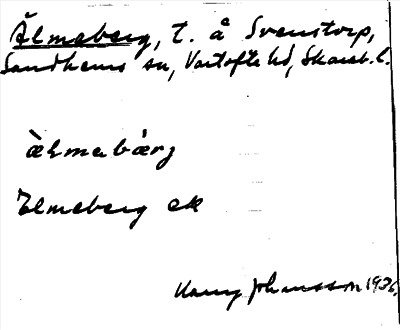 Älmeberg, t. å Svenstorp,
Sandhems sn, Vartofta hd, Skarab. l.
àlmabärj
Elmeberg ek
Harry Johansson 1926.